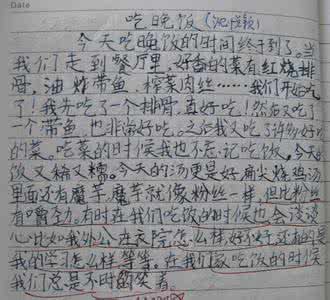 Date
吃晚饭
今天吃晚饭的时间终于到了。当
我们走到餐厅里,好香的菜有红烧排
骨,油炸带鱼,榨菜肉丝……我们开始吃
了!我先吃了一个排骨,真好吃!然后又吃了
一个带鱼,也非常好吃。之后我又吃了许多好吃
的菜。吃菜的时候我也不忘记吃饭,今天的
饭又稀又糯。今天的汤更是好,扁尖烧鸡汤
里面还有魔芋,魔芋就像粉丝一样,但比粉丝
有嚼劲。有时在我们吃饭的时候也会谈谈
心,比如我外公在医院怎么样,好不好,还有的是
我的学习怎么样等等,在我们吃饭的时候
我们总是不时的笑着。